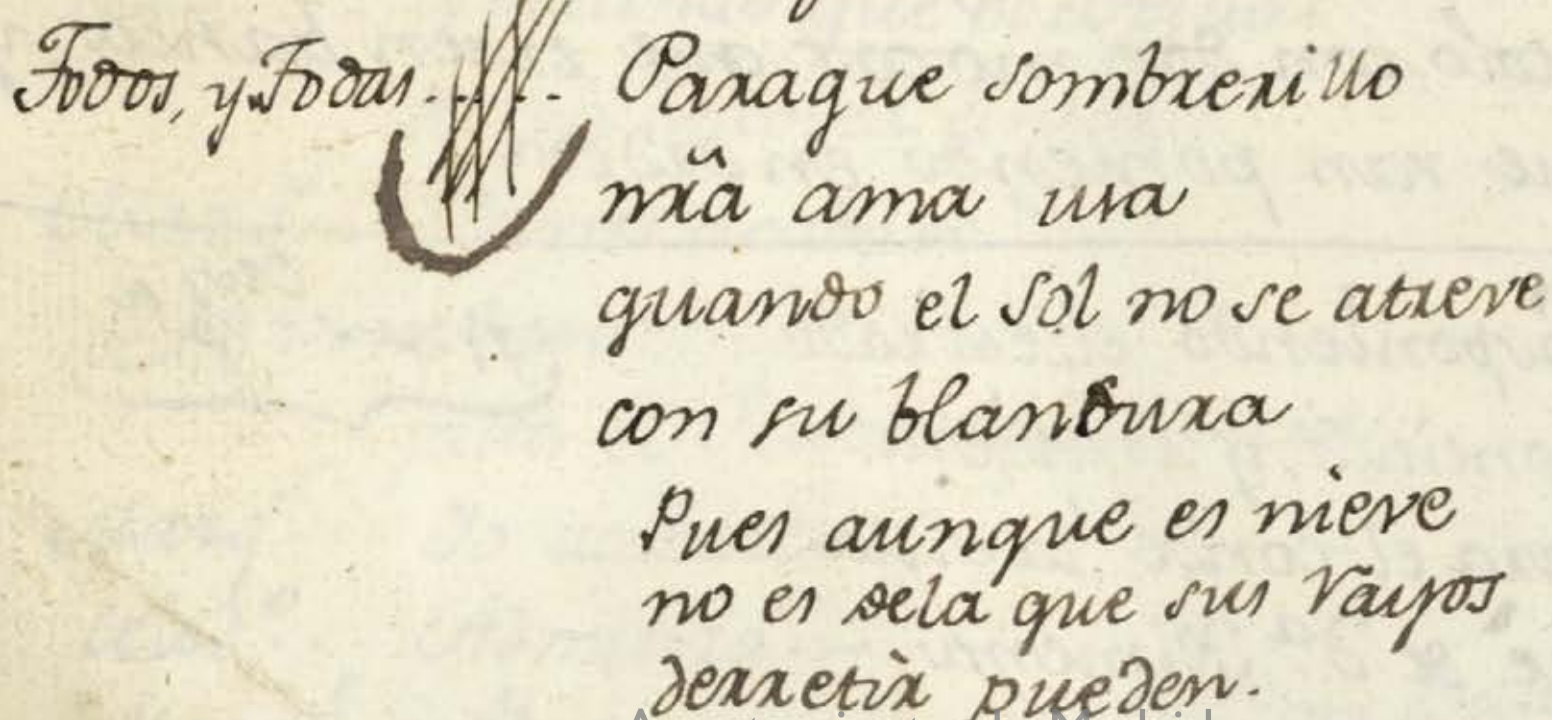 Todos, y Todas..... Paraque sombrerillo
nr̃a ama usa
quando el Sol no se atreve
con su blandura
Pues aunque es nieve
no es dela que sus Rayos
derretir pueden.